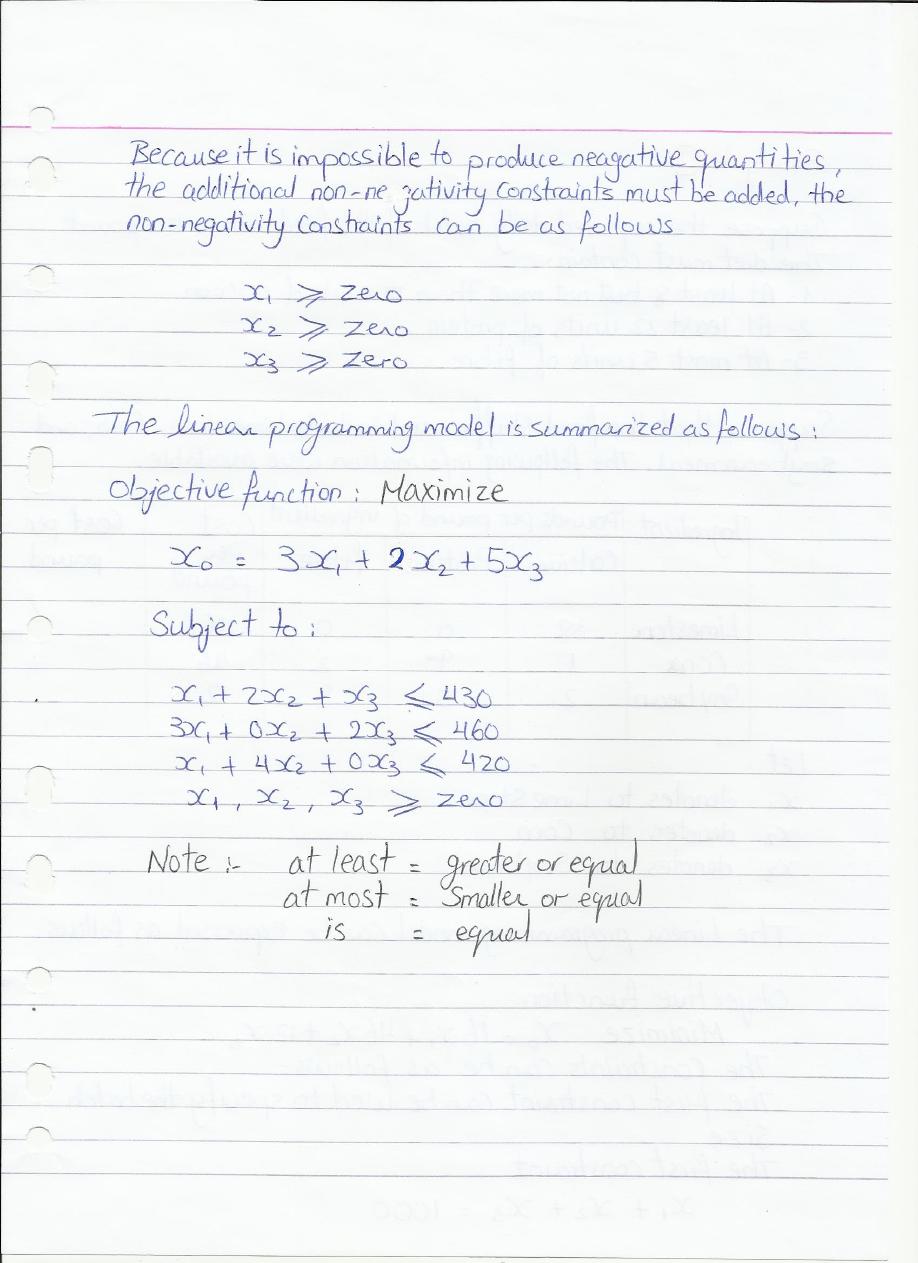 Because it is impossible to produce neagative quantities,
the additional non-ne gativity constraints must be added, the
non-negativity constraints can be as follows
x₁ ⩾ zero
x₂ ⩾ zero
x₃ ⩾ zero
The linear programming model is summarized as follows :
Objective function : Maximize
x₀ = 3x₁ + 2x₂ + 5x₃
Subject to :
x₁ + 2x₂ + x₃ ⩽ 430
3x₁ + 0x₂ + 2x₃ ⩽ 460
x₁ + 4x₂ + 0x₃ ⩽ 420
x₁ , x₂ , x₃ ⩾ zero
Note :- at least = greater or equal
at most = Smaller or equal
is = equal